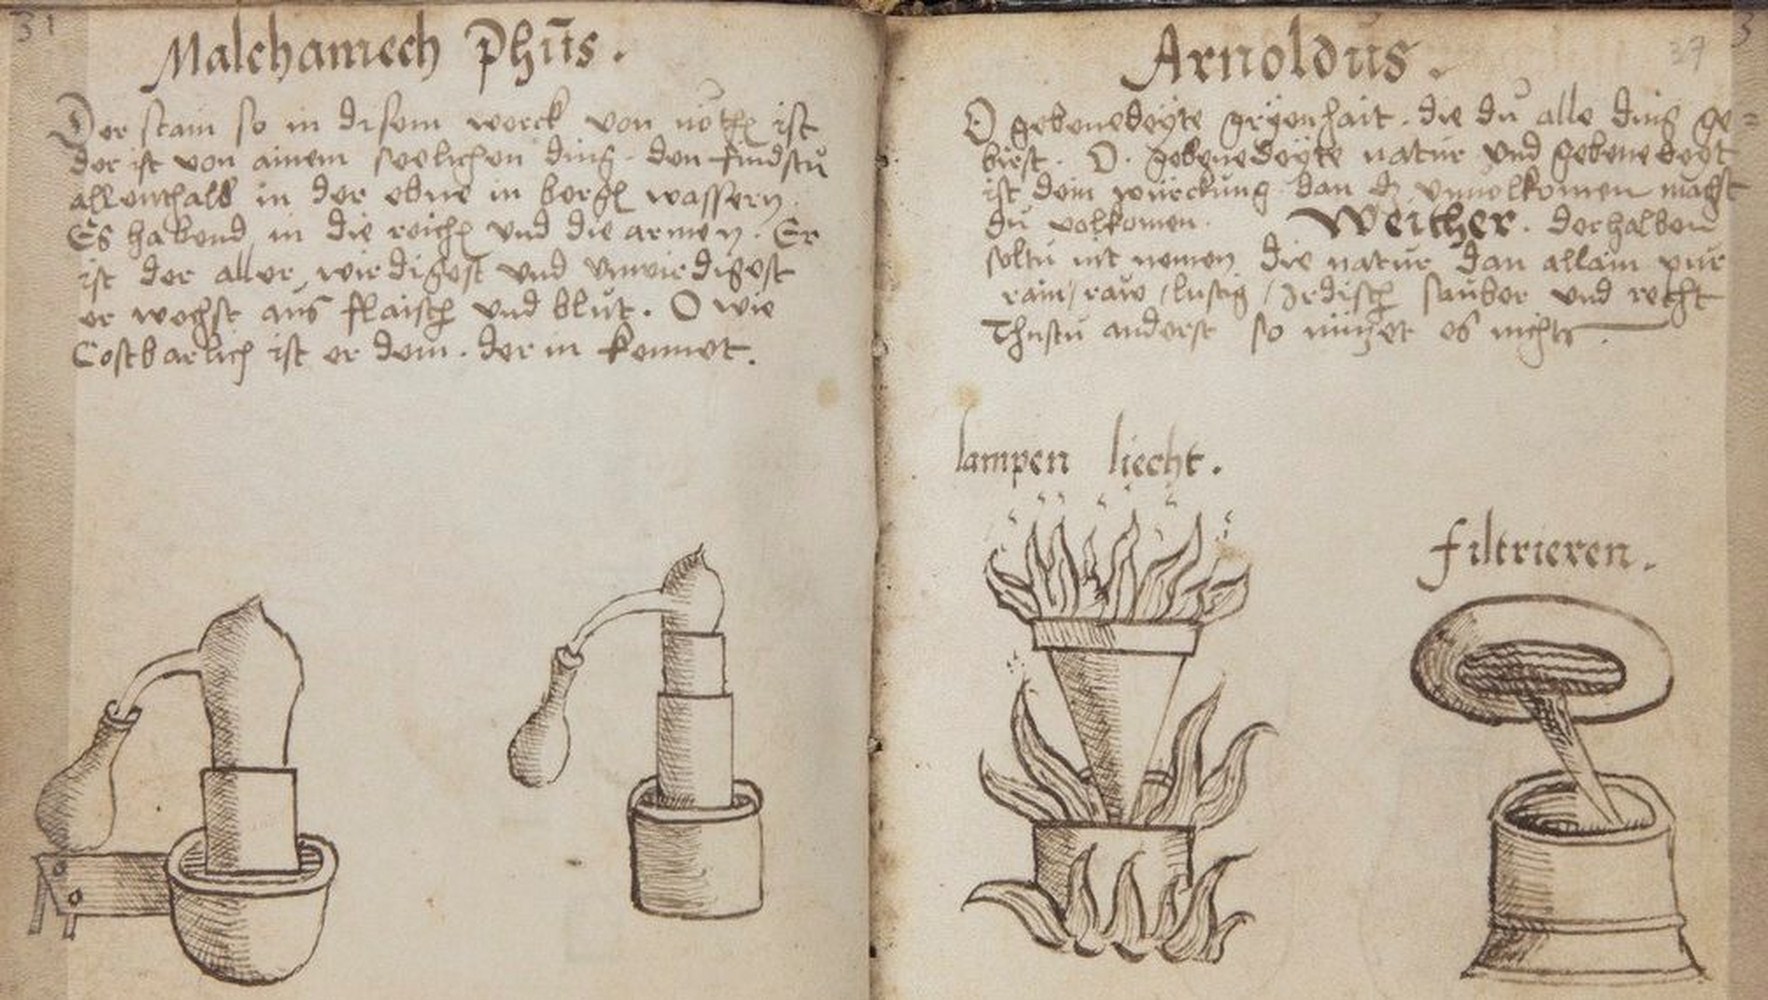 31
Malchamech Phūs.
Der stain so in disem werck von nöthen ist
der ist von ainem seelichen ding. den findstu
allenthalb in der ebne in bergen wassern.
Es habend in die reichen und die armen. Er
ist der aller wirdigest und unwirdigest
er wechst aus flaisch und blut. O wie
Costbarlich ist er dem. der in kennet.
37
3
Arnoldus.
O gebenedeyte gryenhait. die du alle ding ge=
birst. O. gebenedeyte natur und gebenedeyt
ist dein würckung dan dz unuolkomen machst
du volkomen. Weither. derhalben
soltu nit nemen die natur dan allain pur
rain / raw / lustig / Irdisch sauber und recht
Thustu anderst so nutzet es nichts.
lampen liecht.
filtrieren.